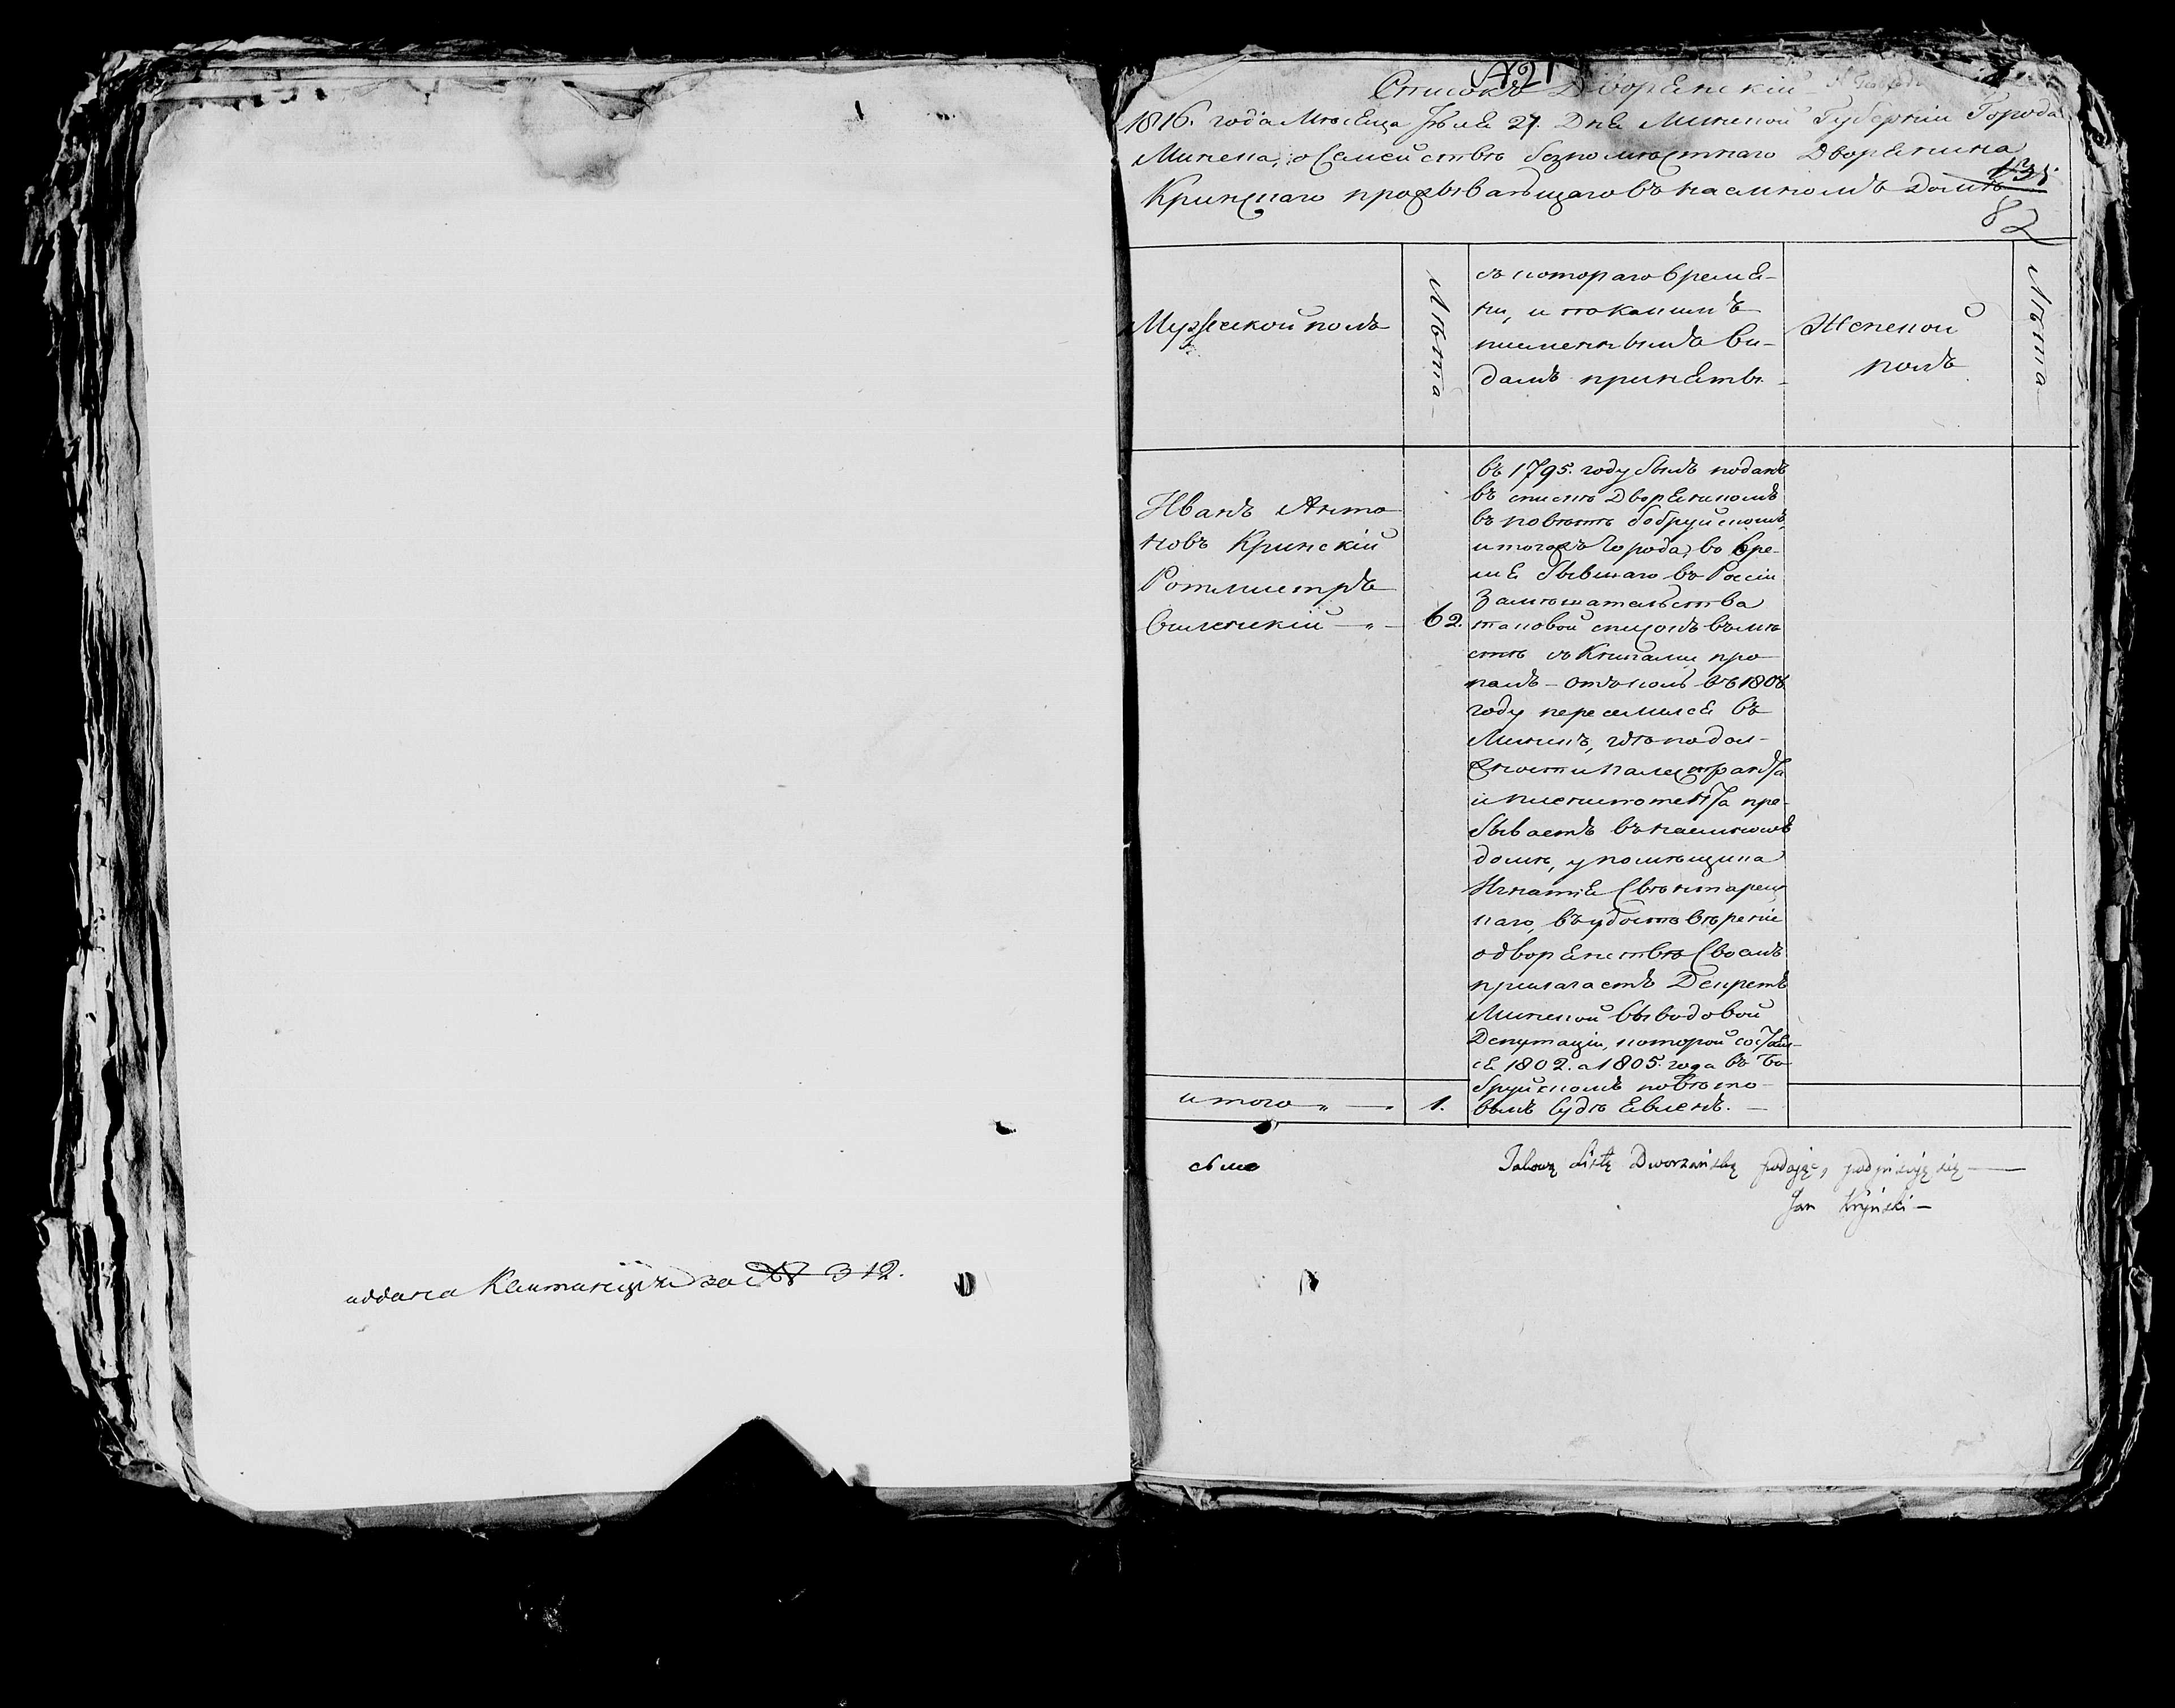 за № 312.
421
Списокъ Дворянскій
1816. года Мѣсяца Июля 27. Дня Минской Губерніи Города
Минска, о Семействѣ безпомѣстнаго Дворянина
Кринскаго прозываящаго въ наемномъ домѣ
131
82
Мужеской полъ
Лѣта
съ котораго време-
ни, и по какимъ
писменнымъ ви-
дамъ принятъ
Женской
полъ
Лѣта
Иванъ Анто
новъ Кринскій
Ротмистръ
виленскій
62.
въ 1795. году былъ поданъ
въ спискѣ Дворяниномъ
въ повѣтѣ бобруйскомъ,
и тогожъ города, во вре-
мя бывшаго въ Россіи
Замѣшательства
таковой списокъ вмѣ
стѣ съ Книгами про
палъ – отъ коль въ 1808
году переселился въ
Минскъ, гдѣ по дол-
жности Палестранта
и пленипотента пре-
бываетъ въ наемномъ
домѣ, у помѣщика
Игнатія Свѣнтарец
каго, въ удостовѣреніе
о дворянствѣ Своемъ
прилагаетъ Декретъ
Минской выводовой
Депутаціи, которой состоял-
ся 1802. а 1805. года въ Бо
бруйскомъ повѣто
вымъ Судѣ явленъ.
итого
1.
Takową Listę Dworzańską podając, podpisuję się
Jan Kryński